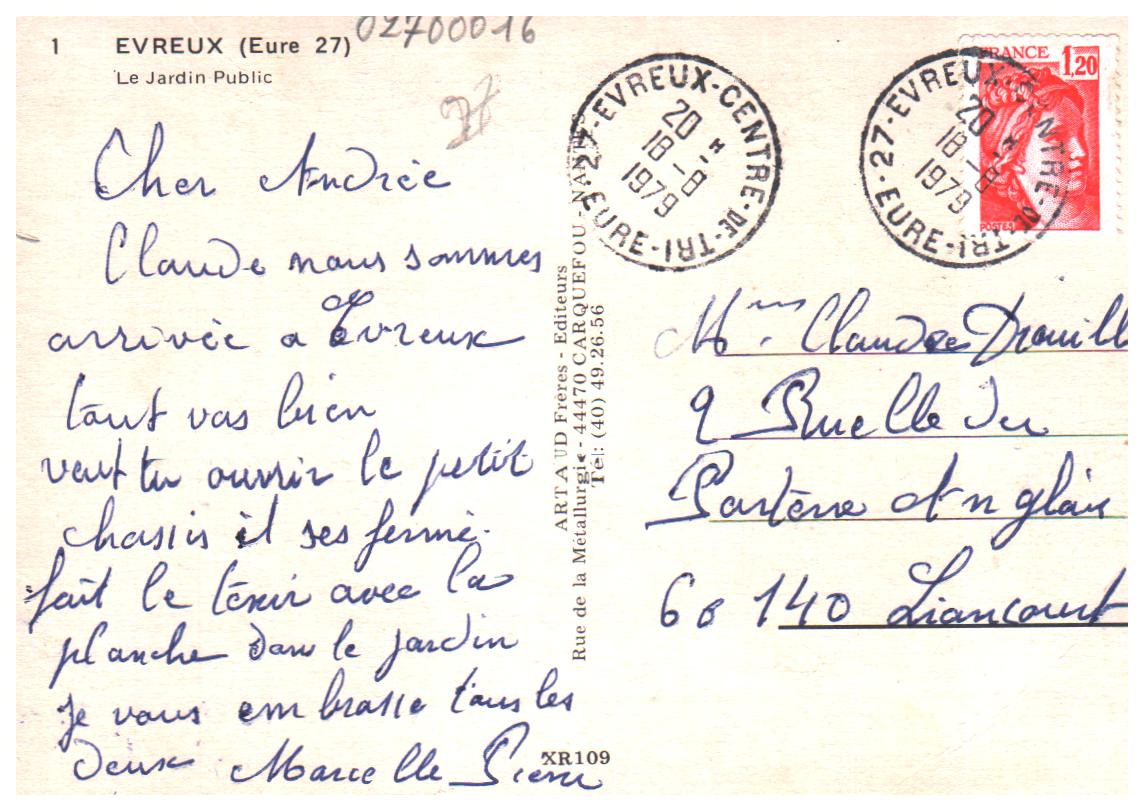 1 EVREUX (Eure 27)
Le Jardin Public
02700016
Cher Andrée
Claude nous sommes
arrivée a Evreux
tout vas bien
veut tu ouvrir le petit
chassis il ses fermé.
fait le tenir avec la
planche dans le jardin
je vous embrasse tous les
deux Marcelle Pierre
ARTAUD Frères - Editeurs
Rue de la Métallurgie - 44470 CARQUEFOU - NANTES
Tél: (40) 49.26.56
XR109
27-EVREUX-CENTRE-DE-TRI-EURE-
20 H
18-8-
1979
27-EVREUX-CENTRE-DE-TRI-EURE-
20 H
18-8-
1979
FRANCE 1,20
POSTES
Mme Claude
Ruelle du
Partère Anglais
60140 Liancourt